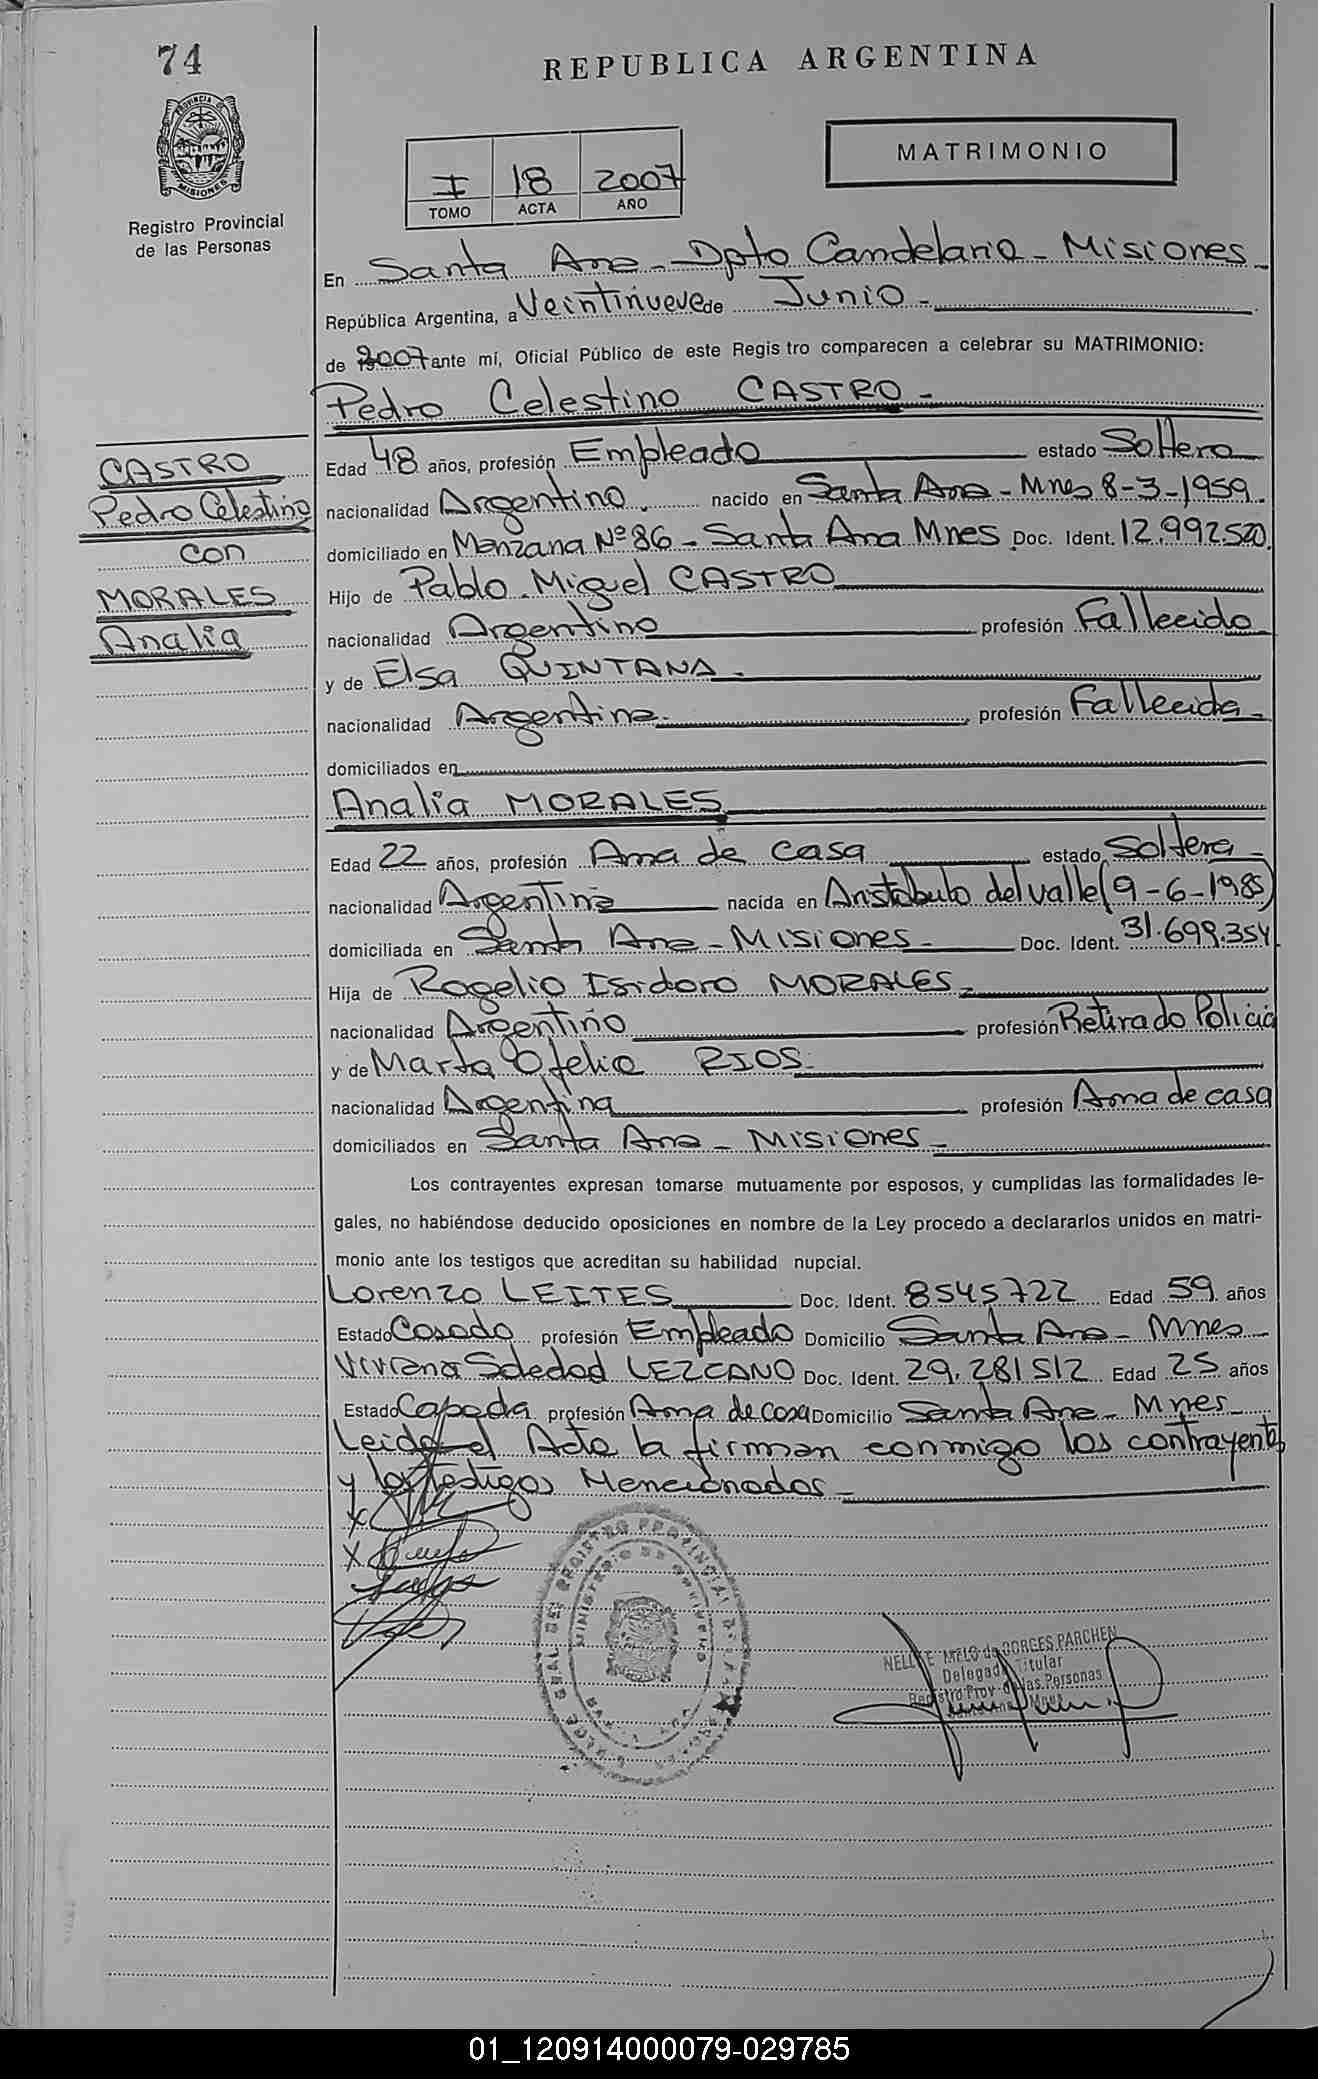 74
REPUBLICA ARGENTINA
PROVINCIA DE
MISIONES
Registro Provincial
de las Personas
MATRIMONIO
I 18 2007
TOMO ACTA AÑO
En Santa Ana - Dpto Candelaria - Misiones
República Argentina, a Veintinueve de Junio -
de 2007 ante mí, Oficial Público de este Registro comparecen a celebrar su MATRIMONIO:
Pedro Celestino CASTRO -
CASTRO
Pedro Celestino
con
MORALES
Analia
Edad 48 años, profesión Empleado estado Soltero
nacionalidad Argentino. nacido en Santa Ana - Mnes 8-3-1959.
domiciliado en Manzana Nº 86 - Santa Ana Mnes Doc. Ident. 12.992.520
Hijo de Pablo Miguel CASTRO
nacionalidad Argentino profesión Fallecido
y de Elsa QUINTANA -
nacionalidad Argentina profesión Fallecida -
domiciliados en
Analia MORALES
Edad 22 años, profesión Ama de casa estado Soltera
nacionalidad Argentina nacida en Aristobulo del valle (9-6-1985)
domiciliada en Santa Ana - Misiones - Doc. Ident. 31.699.354
Hija de Rogelio Isidoro MORALES -
nacionalidad Argentino profesión Retirado Policia
y de Marta Ofelia RIOS -
nacionalidad Argentina profesión Ama de casa
domiciliados en Santa Ana - Misiones -
Los contrayentes expresan tomarse mutuamente por esposos, y cumplidas las formalidades le-
gales, no habiéndose deducido oposiciones en nombre de la Ley procedo a declararlos unidos en matri-
monio ante los testigos que acreditan su habilidad nupcial.
Lorenzo LEITES Doc. Ident. 8545722 Edad 59 años
Estado Casado profesión Empleado Domicilio Santa Ana - Mnes
Viviana Soledad LEZCANO Doc. Ident. 29.281512 Edad 25 años
Estado Casada profesión Ama de casa Domicilio Santa Ana - Mnes -
Leida el Acta la firman conmigo los contrayentes
y los testigos Mencionados -
REGISTRO PROVINCIAL DE LAS
MINISTERIO DE GOBIERNO
MELO de BORGES PARCHEN
Delegada Titular
Registro Prov. de las Personas
Santa Ana Mnes
01_120914000079-029785